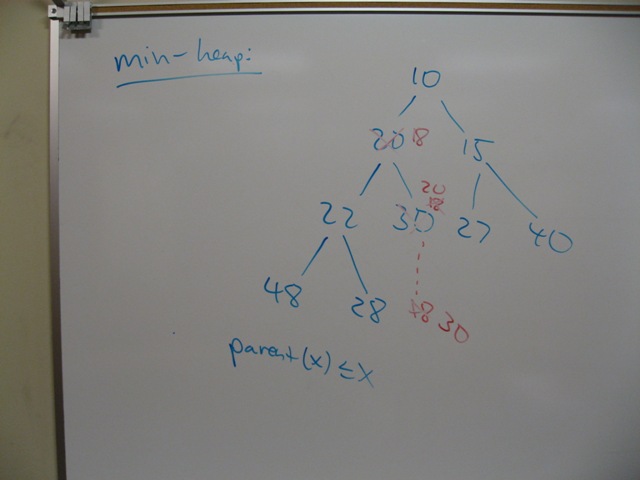 min-heap:
10
20 18 15
20
18
22 30 27 40
48 28 18 30
parent(x) ≤ x